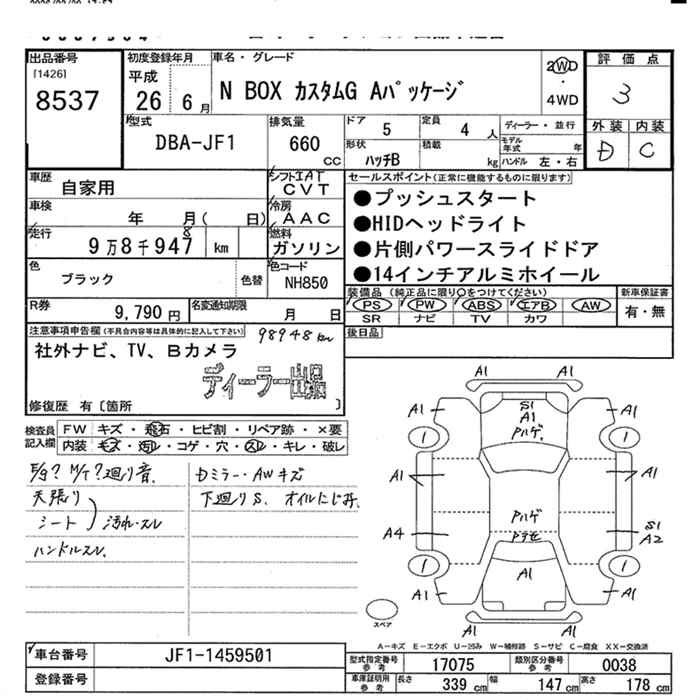 出品番号
[1426]
8537
初度登録年月
平成
26 6月
車名・グレード
N BOX カスタムG Aパッケージ
2WD
・
4WD
評価点
3
外装 内装
D C
型式
DBA-JF1
排気量
660
CC
ドア 5
形状
ハッチB
定員 4 人
積載 kg
ディーラー・並行
モデル年式 年
ハンドル 左・右
車歴
自家用
シフト IAT
CVT
車検
年 月( 日)
冷房
AAC
走行
9万8千947 km
8
燃料
ガソリン
色
ブラック
色替
色コード
NH850
R券
9,790円
名変通知期限
月 日
セールスポイント(正常に機能するものに限ります)
●プッシュスタート
●HIDヘッドライト
●片側パワースライドドア
●14インチアルミホイール
装備品 (純正品に限り○をつけてください)
PS PW ABS エアB AW
SR ナビ TV カワ
新車保証書
有・無
後日品
注意事項申告欄(不具合内容等は具体的に記入して下さい)
98948km
社外ナビ、TV、Bカメラ
ディーラー出品
修復歴 有〔箇所 〕
検査員
記入欄
FW キズ・飛石・ヒビ割・リペア跡・×要
内装 キズ・汚れ・コゲ・穴・スレ・キレ・破レ
E/g? M/T?廻り音.
天張り
シート
汚れ・スレ
ハンドルスレ.
Dミラー・AWキズ
下廻りS. オイルにじみ.
A1 A1
A1 S1 A1
A1
Pハゲ
1 1
A1 A1
Pハゲ
A4 Pアセ S1
A2
1 A1 1
A1 A1
A1
スペア
A-キズ E-エクボ U-凹み W-補修跡 S-サビ C-腐食 XX-交換済
車台番号
JF1-1459501
登録番号
型式指定番号
参考
17075
類別区分番号
参考
0038
車庫証明用
参考
長さ 339 cm
幅 147 cm
高さ 178 cm